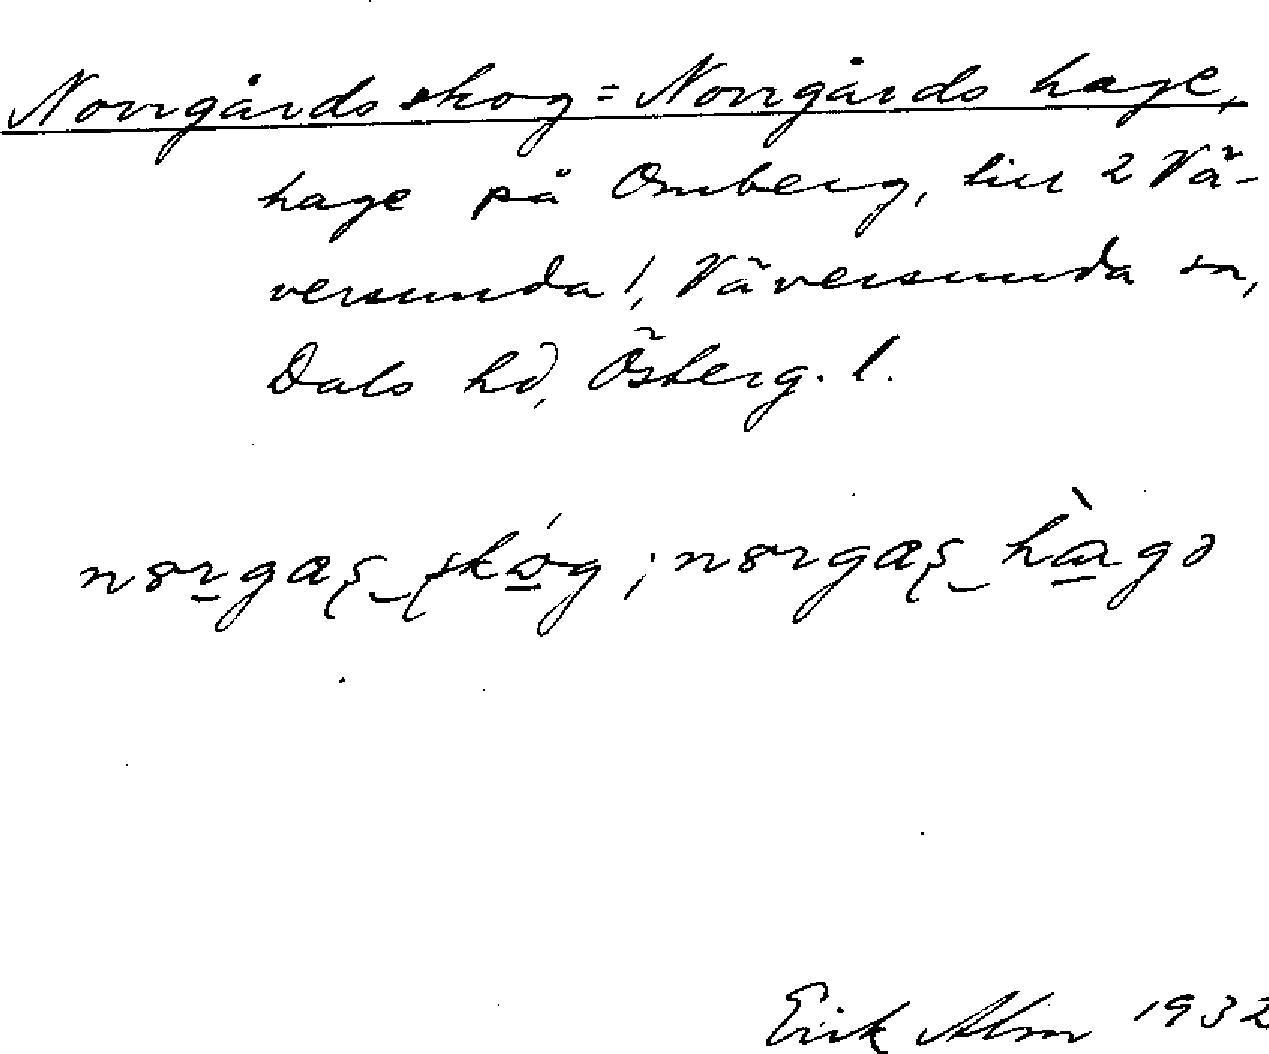 Norrgårds skog = Norrgårds hage,
hage på Omberg, till 2 Vä-
versunda /, Väversunda sn,
Dals hd, Österg. l.
nørgaʂ_skóg; nørgaʂ_hàgə
Erik Alm 1932